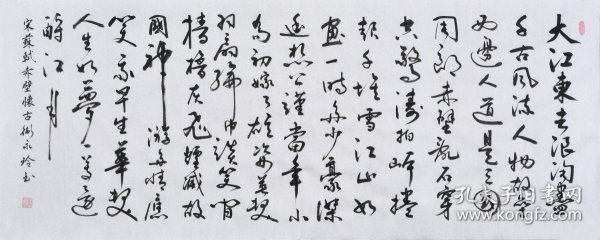 大江東去浪淘盡
千古風流人物故壘
西邊人道是三國
周郎赤壁亂石穿
空驚濤拍岸捲
起千堆雪江山如
畫一時多少豪傑
遙想公謹當年小
喬初嫁了雄姿英發
羽扇綸巾談笑間
檣櫓灰飛煙滅故
國神游多情應
笑我早生華髮
人生如夢一尊還
酹江月
宋蘇軾赤壁懷古永玲书
孔夫子旧书网
www.kongfz.com